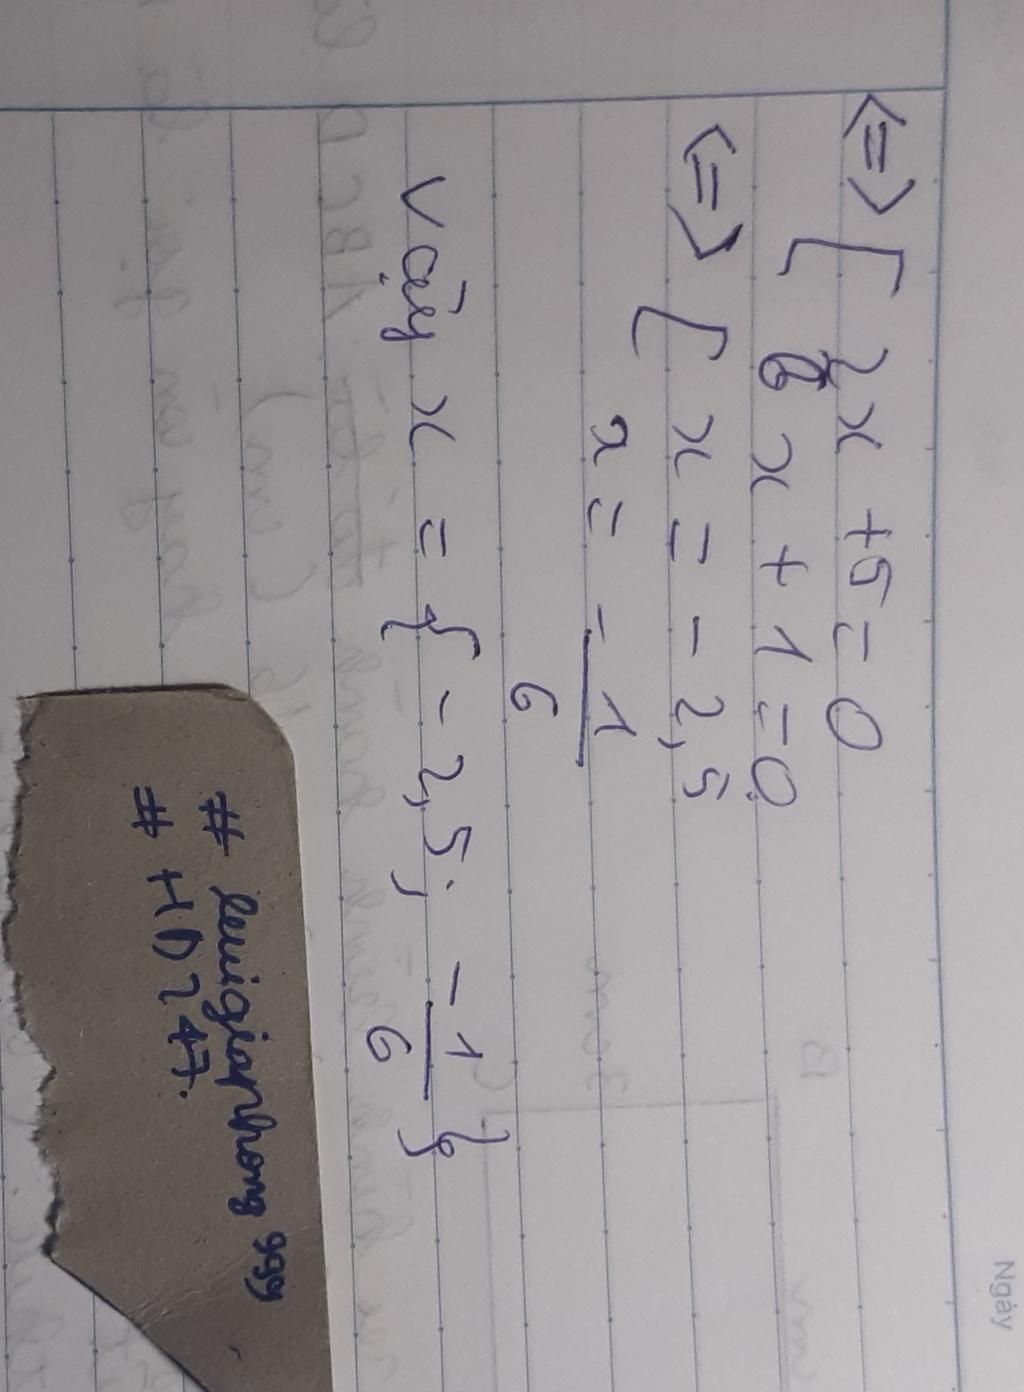 <=> [ 2x + 5 = 0
6x + 1 = 0
<=> [ x = - 2,5
x = - 1/6
Vậy x = { - 2,5; - 1/6 }
# lenigiaphong 99y
# HD247.
Ngày